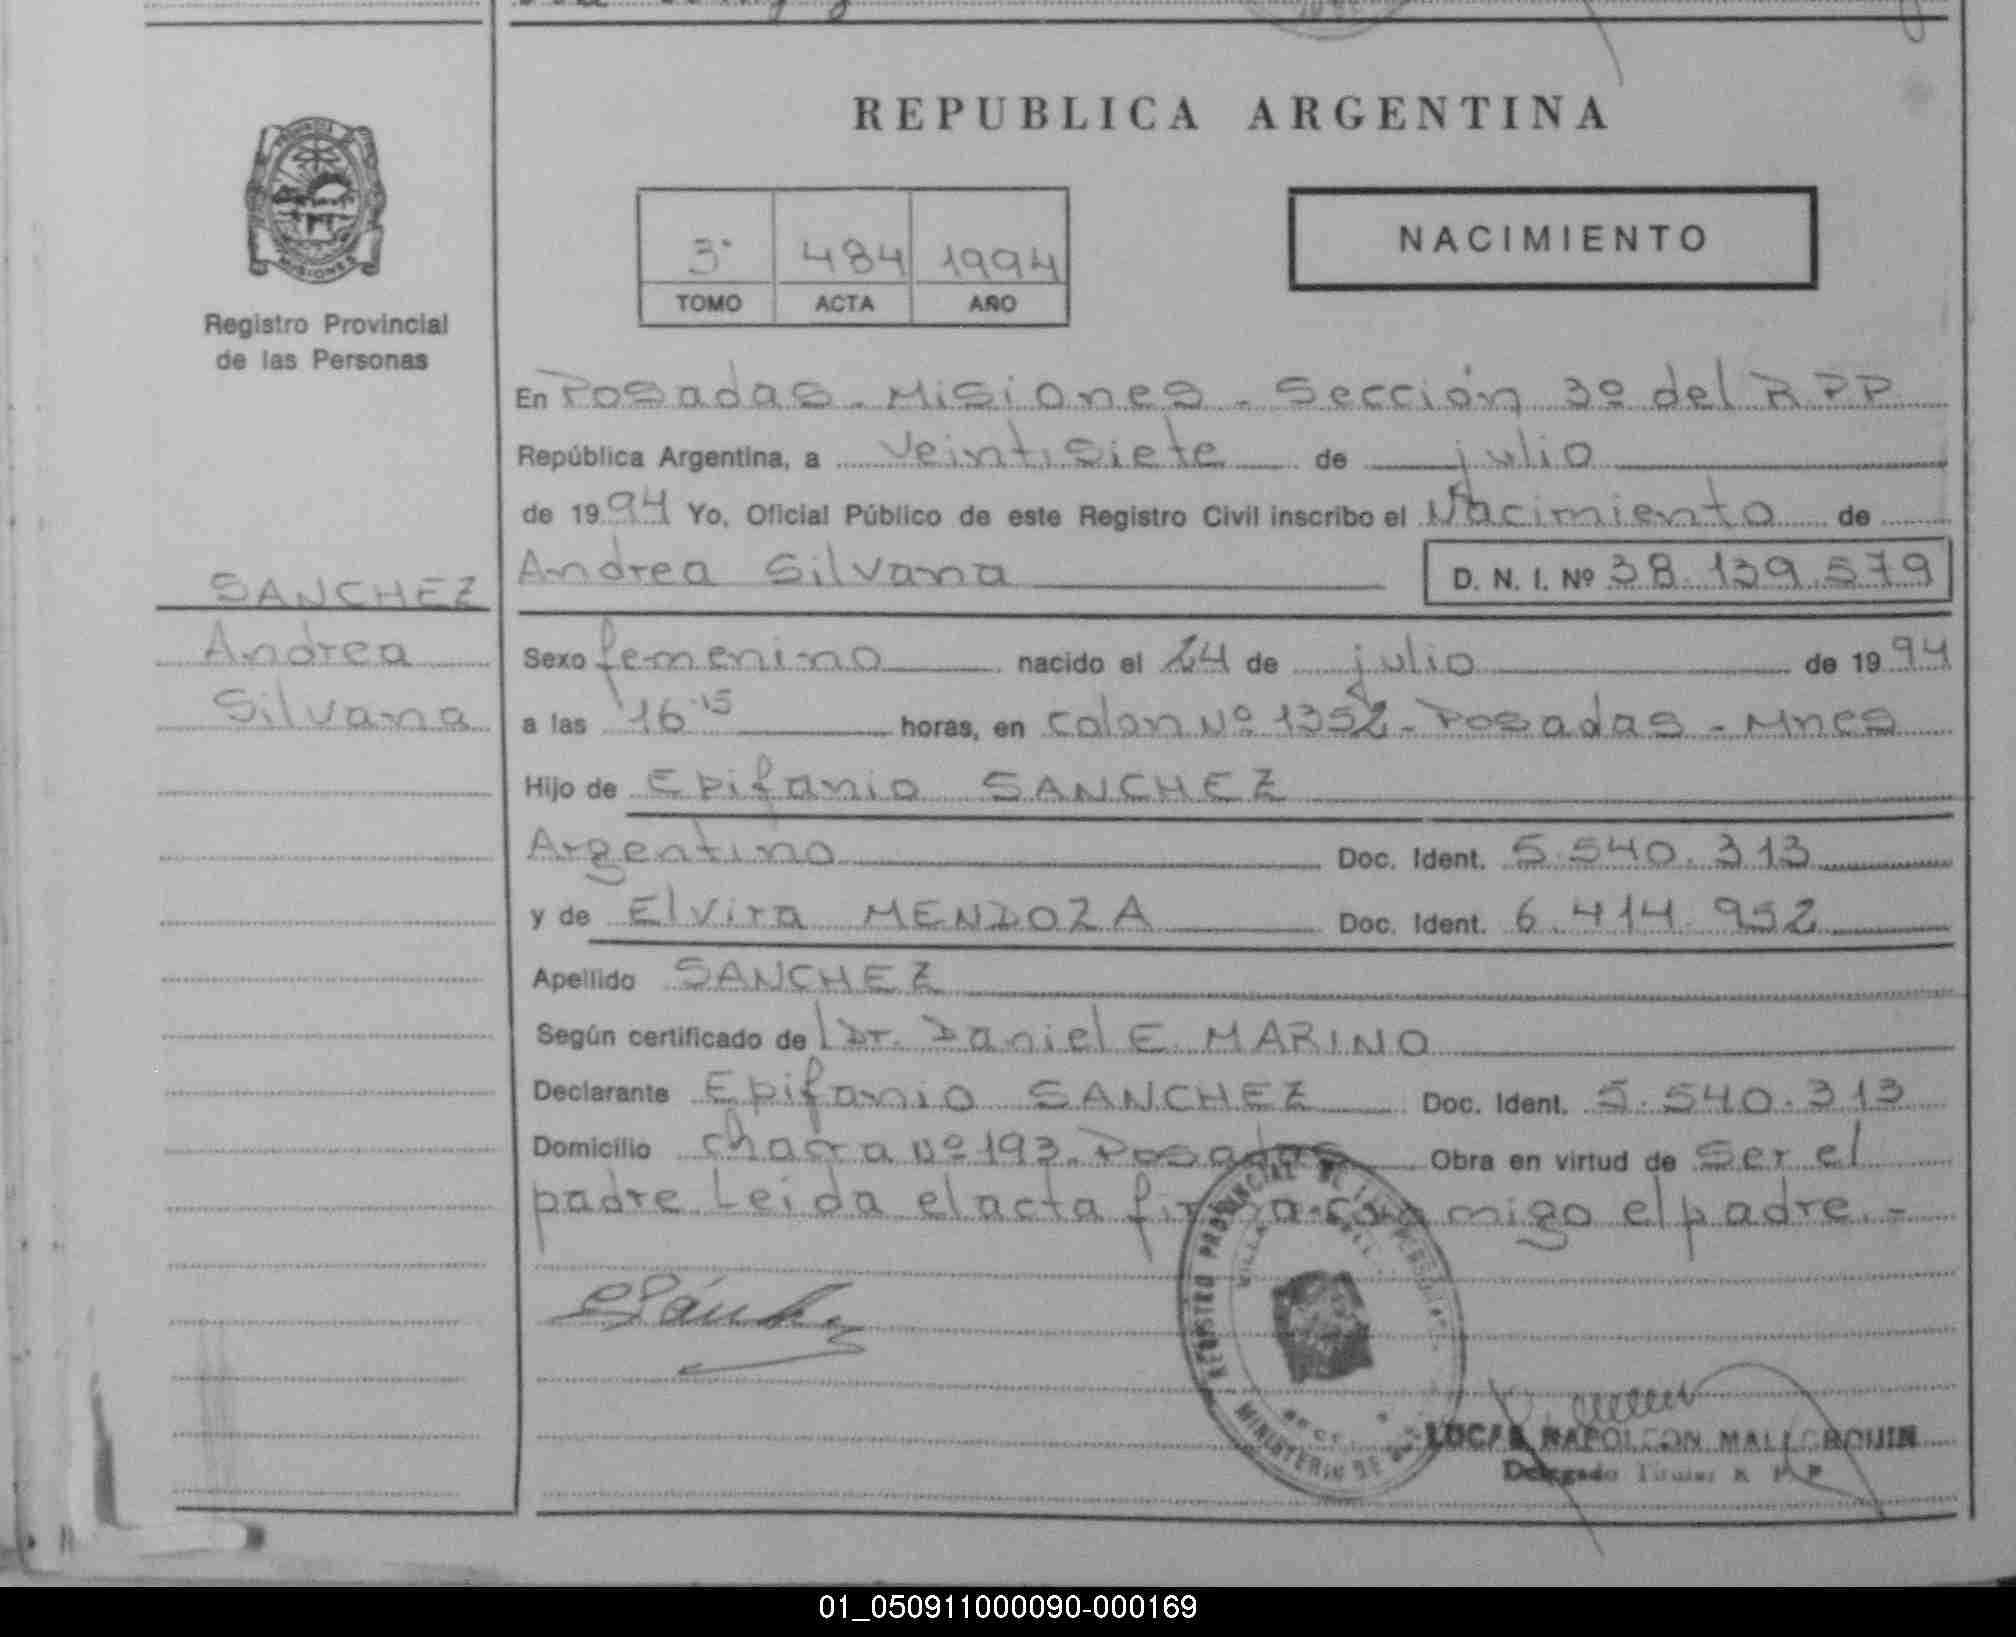 REPUBLICA ARGENTINA
MISIONES
Registro Provincial
de las Personas
3° 484 1994
TOMO ACTA AÑO
NACIMIENTO
En Posadas - Misiones - Sección 3º del R P P
República Argentina, a veintisiete de julio
de 1994 Yo, Oficial Público de este Registro Civil inscribo el Nacimiento de
Andrea Silvana D. N. I. Nº 38.139.579
SANCHEZ
Andrea
Silvana
Sexo femenino nacido el 24 de julio de 1994
a las 16 15 horas, en Colon Nº 1352 - Posadas - Mnes
Hijo de Epifanio SANCHEZ
Argentino Doc. Ident. 5.540.313
y de Elvira MENDOZA Doc. Ident. 6.414.952
Apellido SANCHEZ
Según certificado de l Dr. Daniel E. MARINO
Declarante Epifanio SANCHEZ Doc. Ident. 5.540.313
Domicilio chacra Nº 193 - Posadas Obra en virtud de Ser el
padre Leida el acta firma conmigo el padre. -
REGISTRO PROVINCIAL DE LAS PERSONAS
MINISTERIO DE
LUCAS NAPOLEON
Delegado Titular R P P
01_050911000090-000169